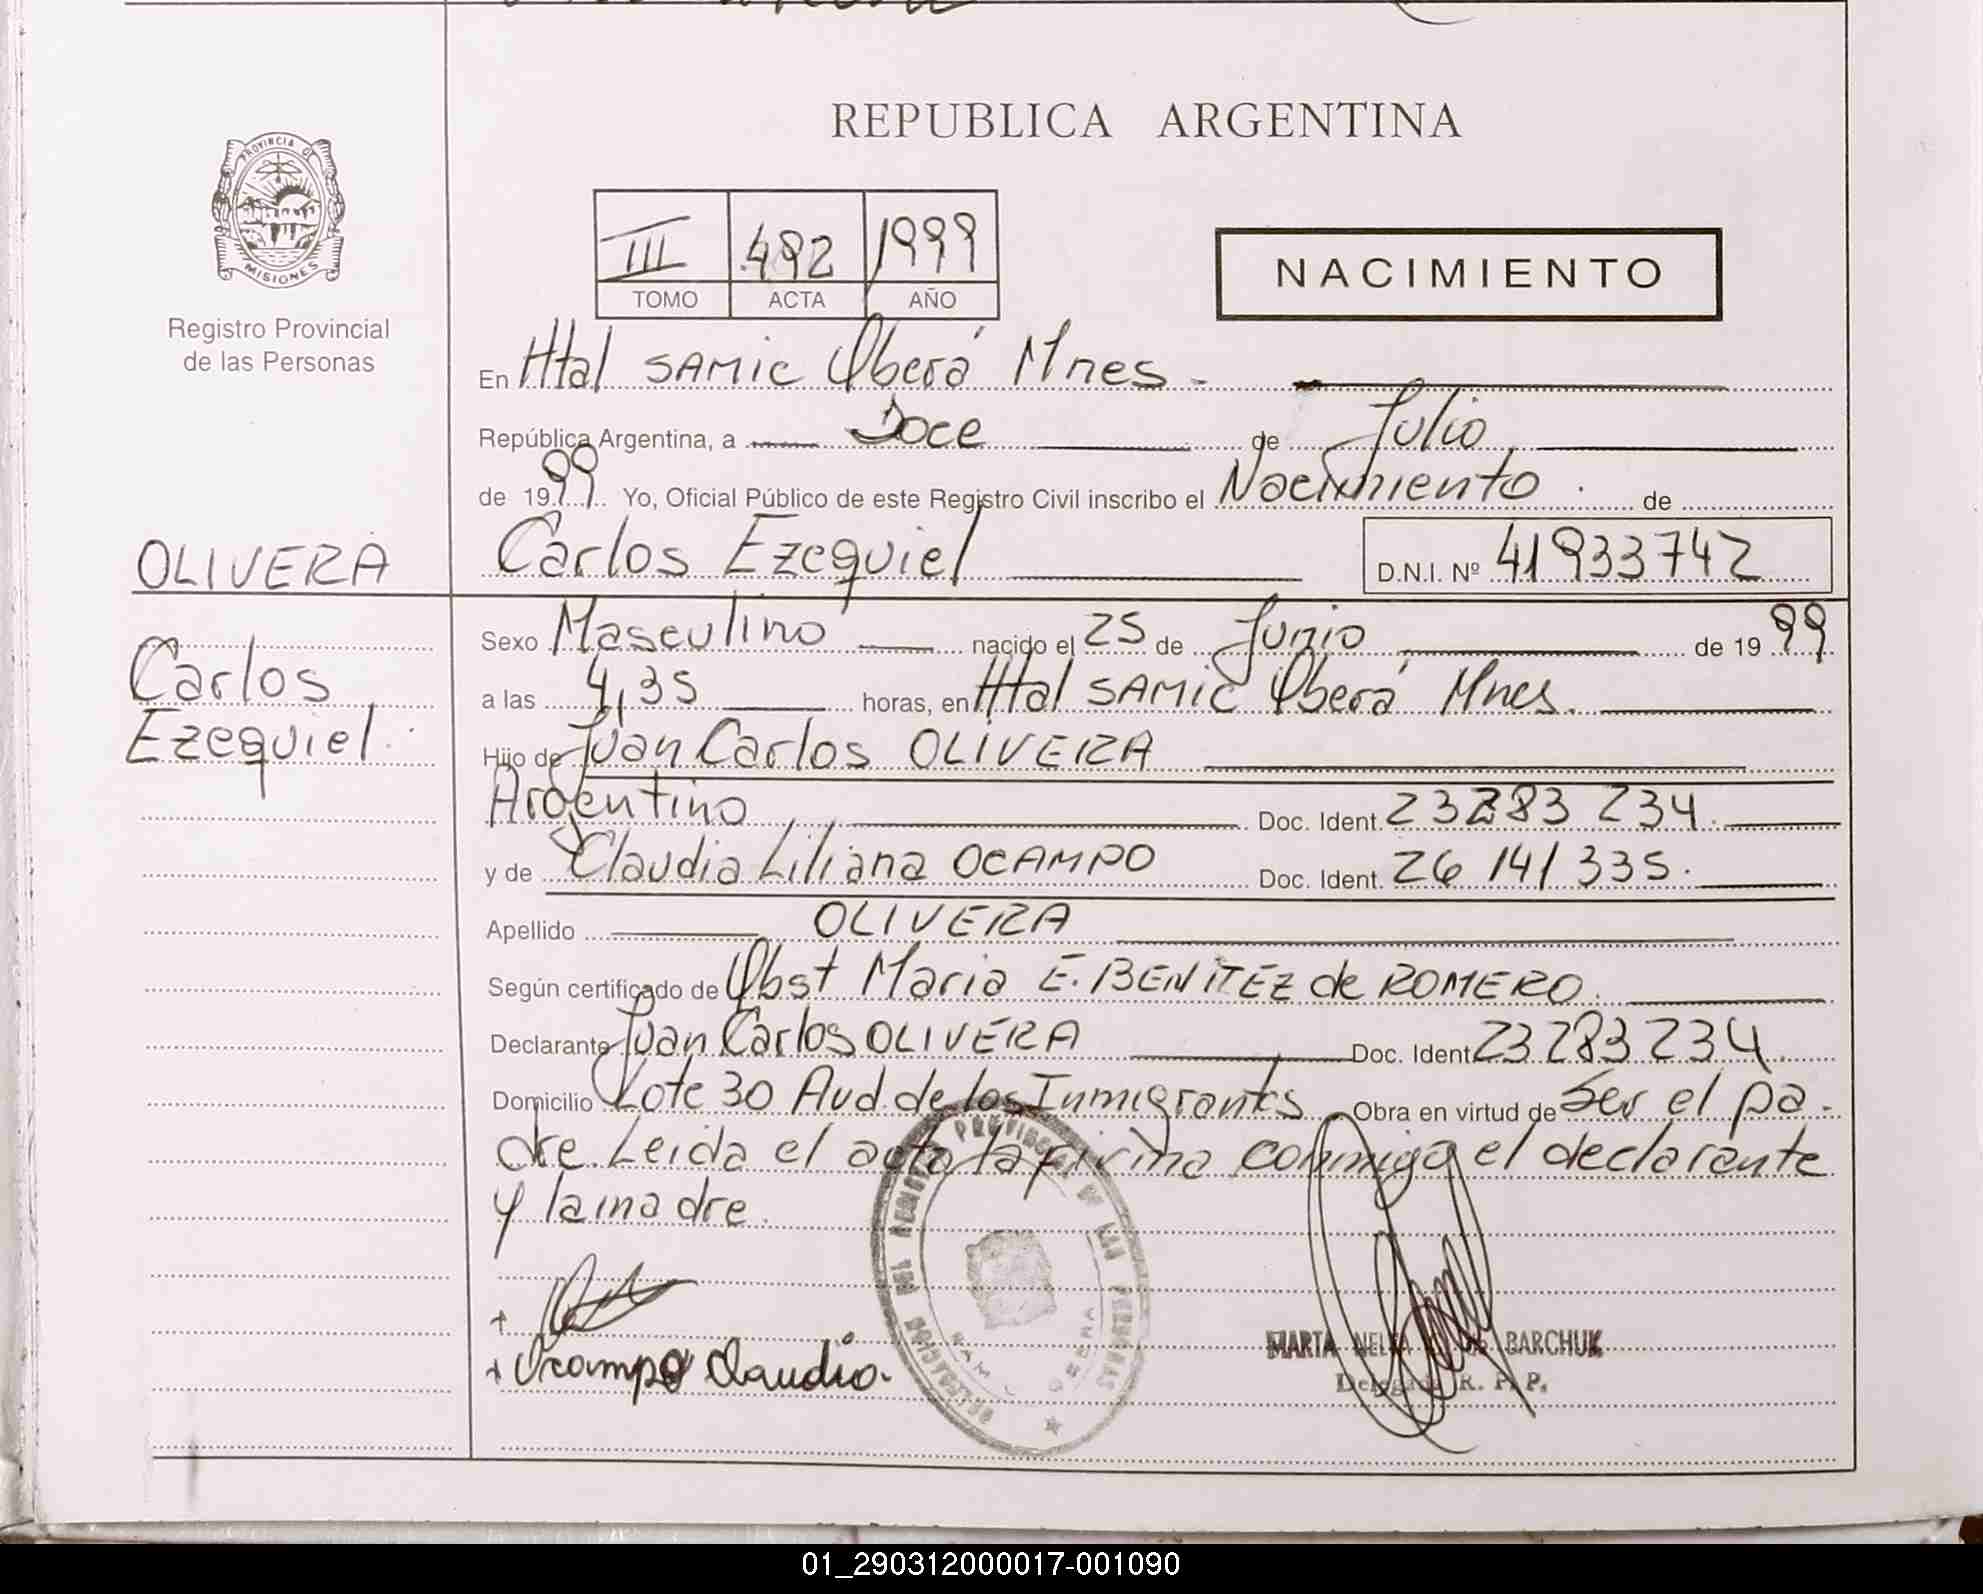 REPUBLICA ARGENTINA
PROVINCIA DE
MISIONES
Registro Provincial
de las Personas
III 492 1999
TOMO ACTA AÑO
NACIMIENTO
En Htal SAMIC Oberá Mnes.
República Argentina, a Doce de Julio
de 1999 Yo, Oficial Público de este Registro Civil inscribo el Nacimiento de
OLIVERA
Carlos Ezequiel D.N.I. Nº 41933742
Carlos
Ezequiel
Sexo Masculino nacido el 25 de Junio de 1999
a las 4,35 horas, en Htal SAMIC Oberá Mnes.
Hijo de Juan Carlos OLIVERA
Argentino Doc. Ident. 23283 234
y de Claudia Liliana OCAMPO Doc. Ident. 26 141 335.
Apellido OLIVERA
Según certificado de Obst Maria E. BENITEZ de ROMERO.
Declarante Juan Carlos OLIVERA Doc. Ident. 23 283 234
Domicilio Lote 30 Avd. de los Inmigrantes Obra en virtud de Ser el pa-
dre. Leida el acta la firma conmigo el declarante
y la madre.
DELEGACION DEL REGISTRO PROVINCIAL DE LAS PERSONAS
OBERA
Ocampo Claudia.
MARTA NELIDA BARCHUK
Delegada R. P. P.
01_290312000017-001090